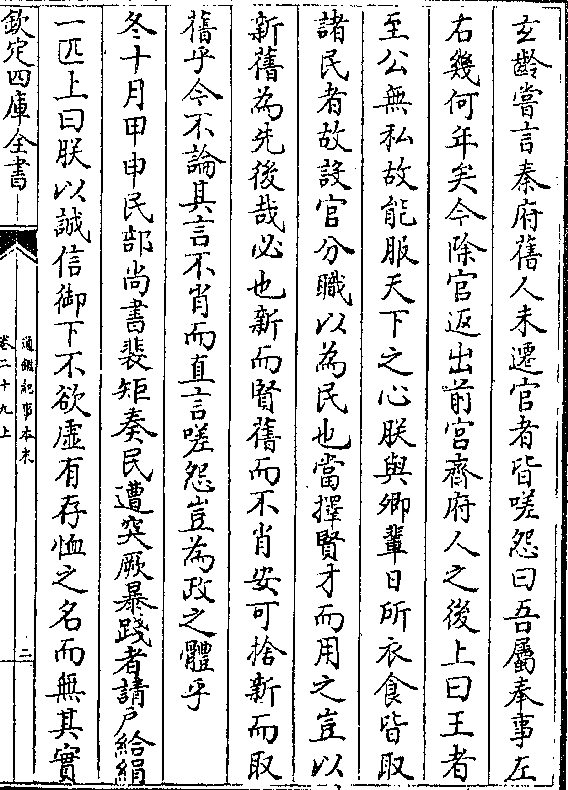 玄齡嘗言秦府舊人未遷官者皆嗟怨曰吾屬奉事左
右幾何年矣今除官返出前宫齊府人之後上曰王者
至公無私故能服天下之心朕與卿輩日所衣食皆取
諸民者故設官分職以為民也當擇賢才而用之豈以
新舊為先後哉必也新而賢舊而不肖安可捨新而取
舊乎今不論其言不肖而直言嗟怨豈為政之體乎
冬十月甲申民部尚書裴矩奏民遭突厥暴踐者請戶給絹
一匹上曰朕以誠信御下不欲虛有存恤之名而無其實
欽定四庫全書
通鑑紀事本末
卷二十九上
二